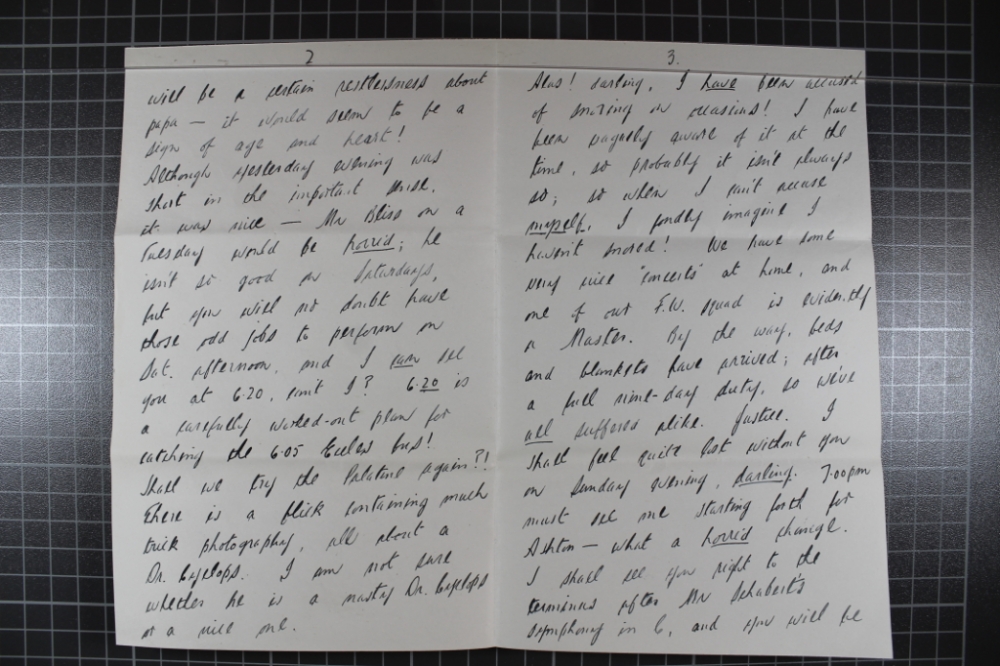 2
will be a certain restlessness about
papa — it would seem to be a
sign of age and heart!
Although yesterday evening was
short in the important sense,
it was nice — Mr Bliss on a
Tuesday would be horrid; he
isn't so good on Saturdays,
but you will no doubt have
those odd jobs to perform on
Sat. afternoon, and I can see
you at 6.20, can't I? 6.20 is
a carefully worked-out plan for
catching the 6.05 Eccles bus!
Shall we try the Palatine again?!
There is a flick containing much
trick photography, all about a
Dr. Cyclops. I am not sure
whether he is a nasty Dr. Cyclops
or a nice one.
3.
Alas! darling, I have been accused
of snoring on occasions! I have
been vaguely aware of it at the
time, so probably it isn't always
so; so when I can't accuse
myself, I fondly imagine I
haven't snored! We have some
very nice "concerts" at home, and
one of our F.W. squad is evidently
a Master. By the way, beds
and blankets have arrived; after
a full nine-day duty, so we've
all suffered alike. Justice. I
shall feel quite lost without you
on Sunday evening, darling. 7.00pm
must see me starting forth for
Ashton — what a horrid change.
I shall see you right to the
terminus after Mr Schubert's
symphony in C, and you will be